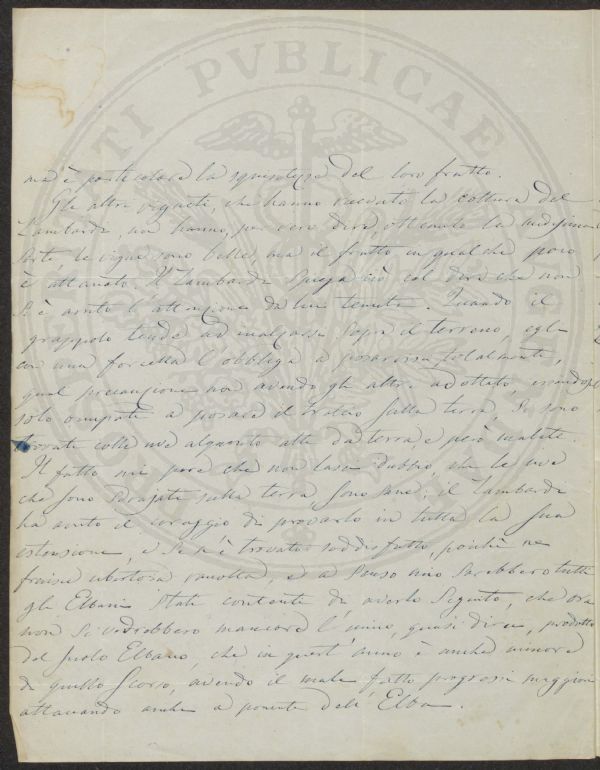 ma è particolare la squisitezza del loro frutto.
Gli altri vigneti, che hanno variato la coltura del
Lambardi, non hanno, per vero dire, ottenuto la medesima
sorte, le vigne sono belle, ma il frutto in qualche poco
è attaccato. Il Lambardi spiega ciò col dire che non
si è avuto l'attenzione da lui tenuta. Quando il
grappolo tende ad inalzarsi sopra il terreno, egli
con una forcella l'obbliga a posarvisi totalmente,
qual precauzione non avendo gli altri adottato, essendosi
solo occupati a posare il tralcio sulla terra, si sono
trovati colle uve alquanto alte da terra e però malate.
Il fatto mi pare che non lasci dubbio, che le uve
che sono sulla terra, sono sane; il Lambardi
ha avuto il coraggio di provarlo in tutta la sua
estensione, e si n'è trovato soddisfatto, poichè ne
fruisce ubertosa raccolta, ed a senso mio sarebbero tutti
gli Elbani stati contenti di averlo seguito, che ora
non si vedrebbero mancare l'unico, quasi direi, prodotto
del suolo Elbano, che in quest'anno è anche minore
di quello scorso, avendo il male fatto progressi maggiori
attaccando anche a ponente dell'Elba.
PUBLICAE